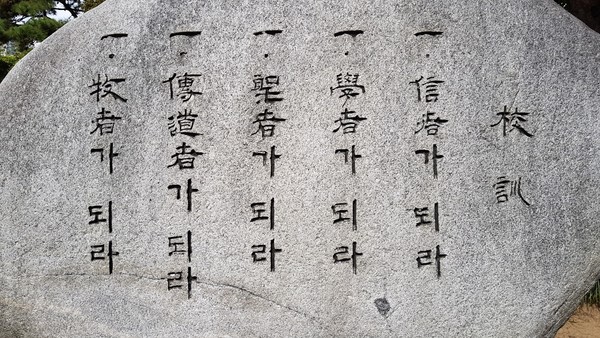 校訓
一. 信者가 되라
一. 學者가 되라
一. 聖者가 되라
一. 傳道者가 되라
一. 牧者가 되라